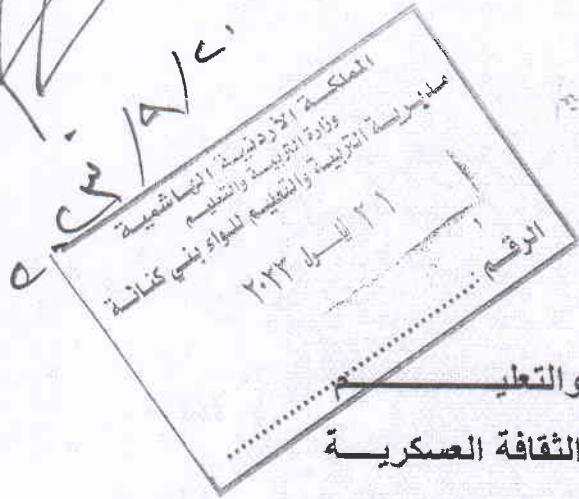 المملكة الأردنية الهاشمية
وزارة التربية والتعليم
مديرية التربية والتعليم للواء بني كنانة
٢١ ايلول ٢٠٢٣
الرقم :
والتعليــــــــــــم
الثقافة العسكريـــة